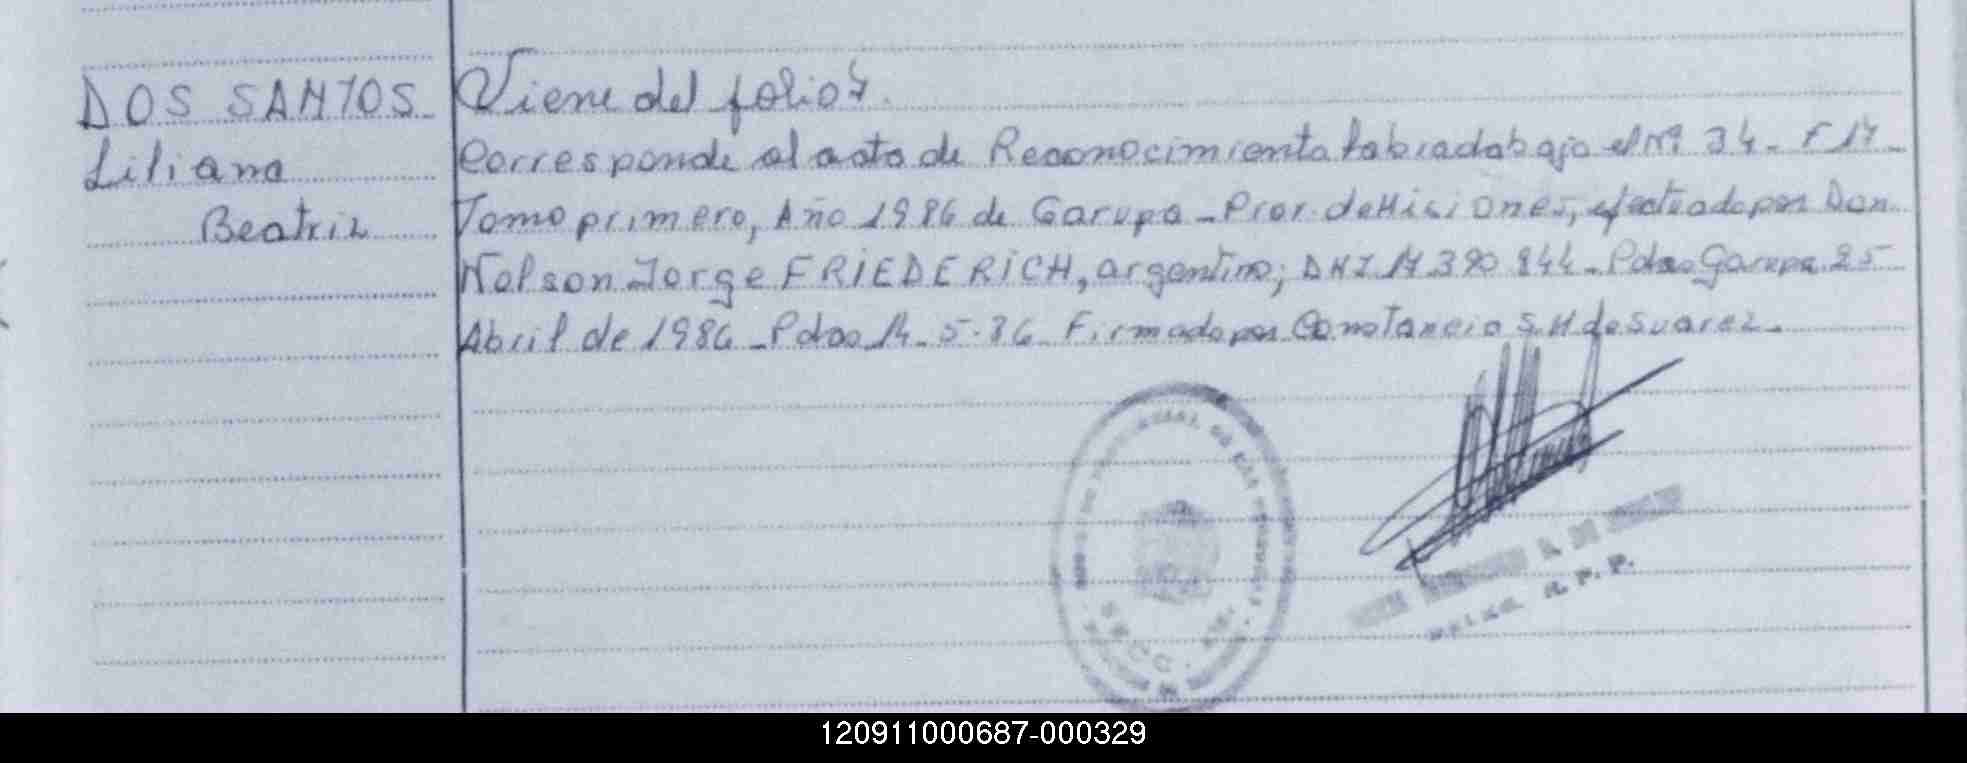 DOS SANTOS
Liliana
Beatriz
Viene del folio 7.
Corresponde al acta de Reconocimiento labrada bajo el Nº 34 - F 17 -
Tomo primero, Año 1986 de Garupa - Prov. de Misiones, efectuado por Don
Nelson Jorge FRIEDERICH, argentino; DNI 17.390.844 - Pdas Garupa 25
Abril de 1986 - Pdas 14 - 5 - 86 Firmado por Constancio S. H de Suarez -
120911000687-000329